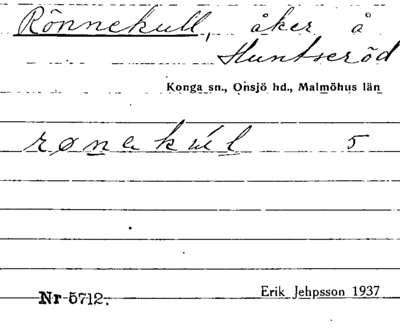 Rönnekull, åker å
Huntseröd
Konga sn., Onsjö hd., Malmöhus län
rønekul 5
Nr 5712. Erik Jehpsson 1937